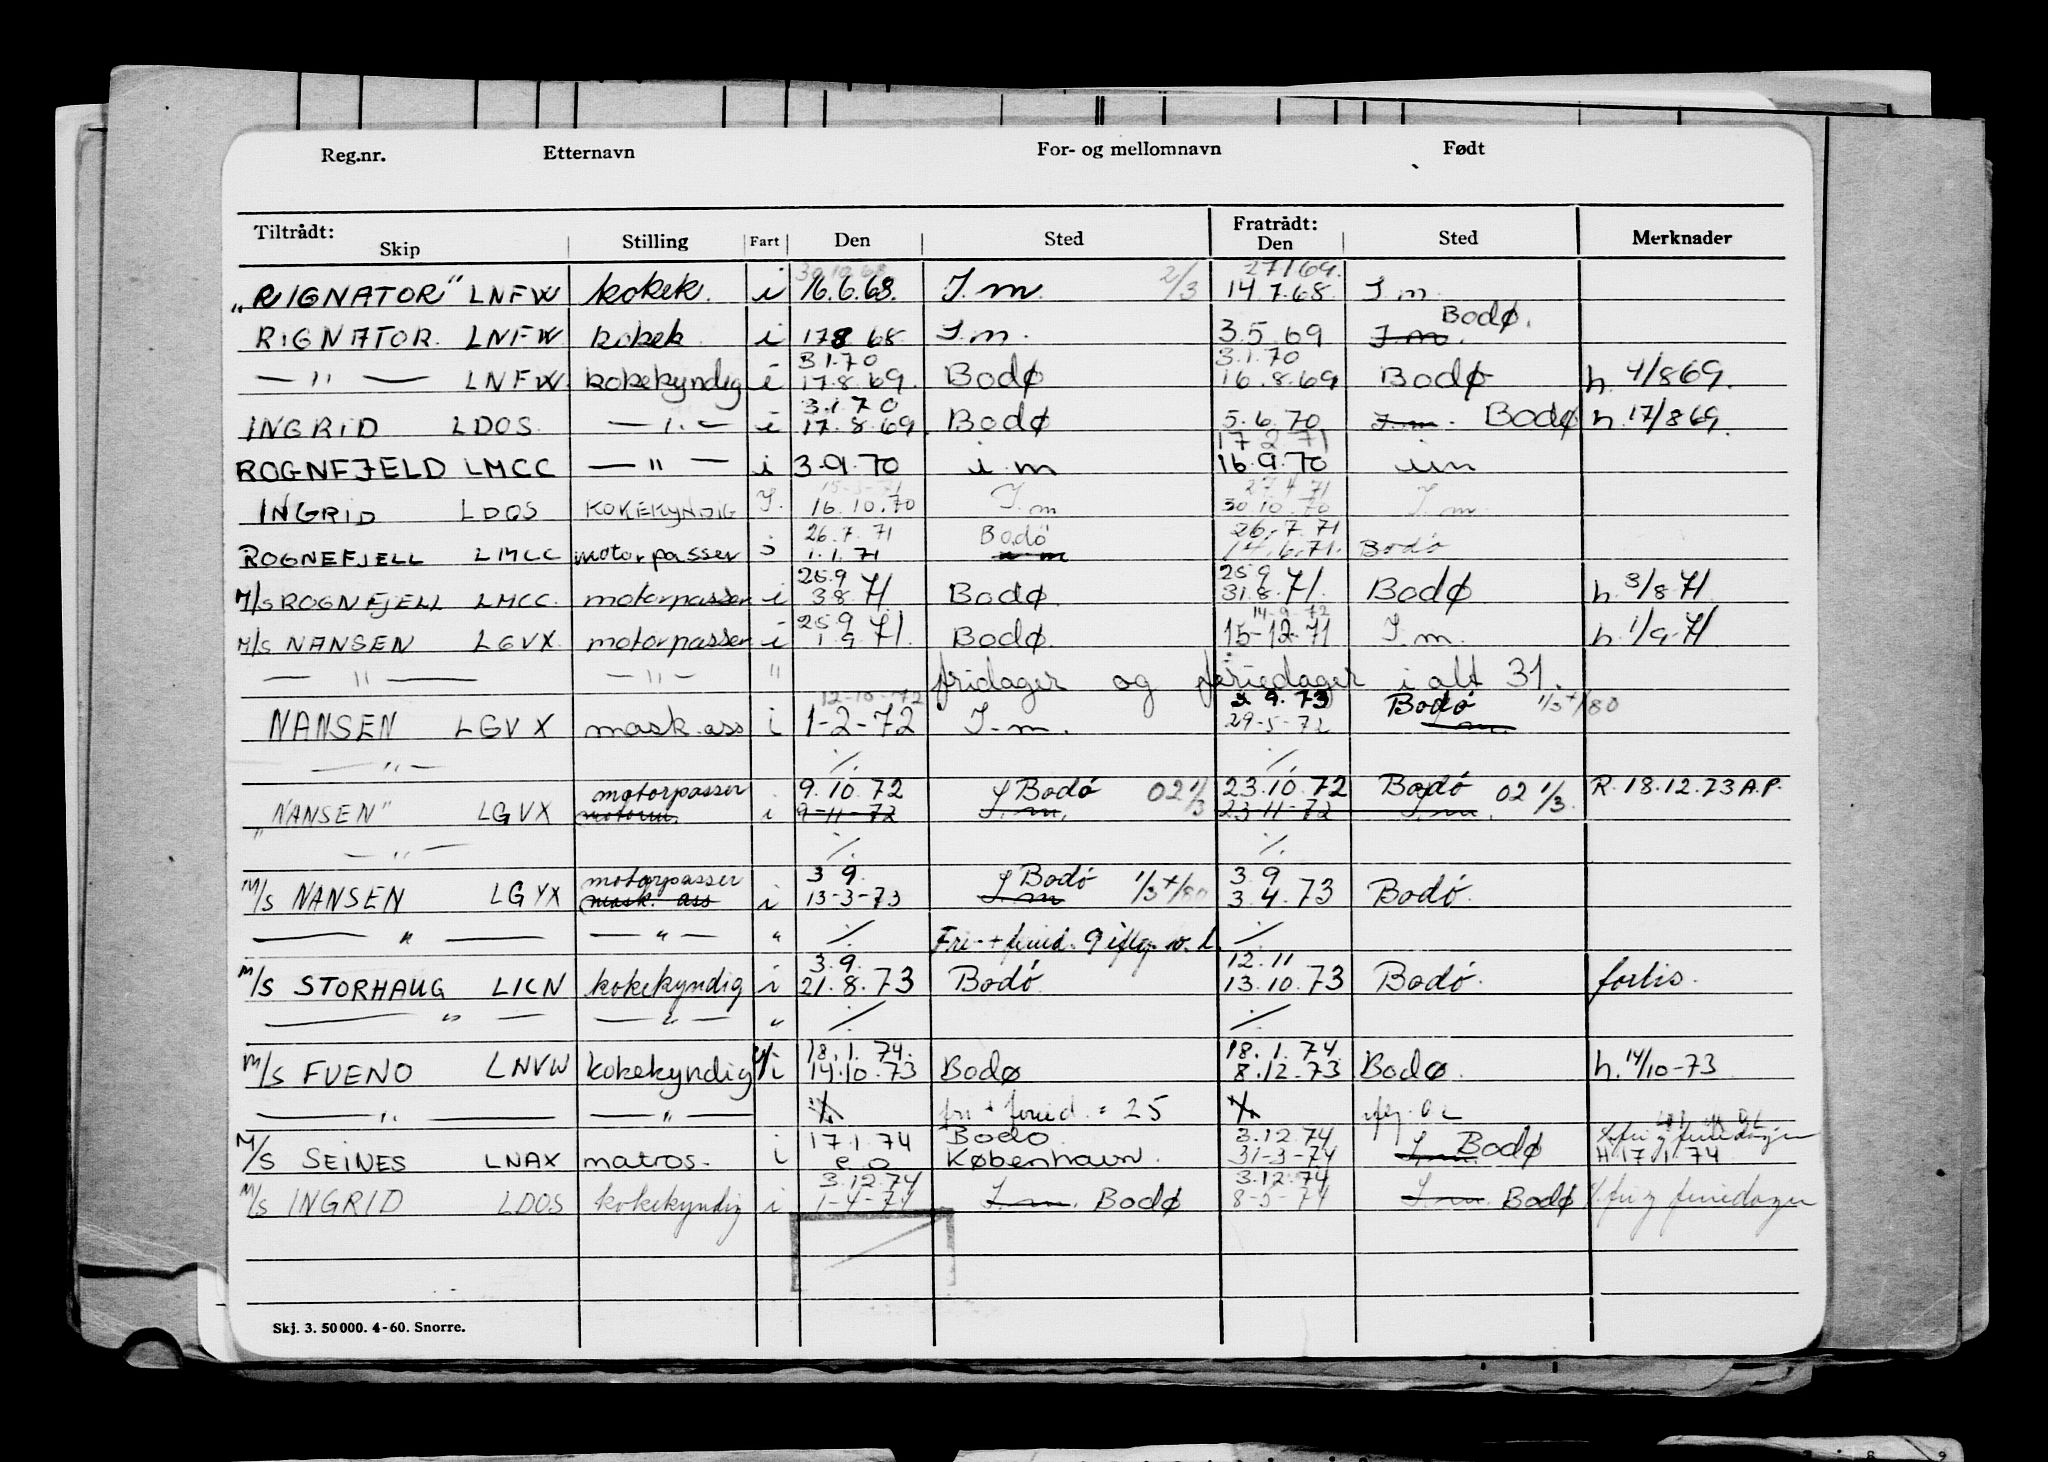 Reg.nr. Etternavn For- og mellomnavn Født
Tiltrådt: Skip Stilling Fart Den Sted Fratrådt: Den Sted Merknader
30.10.68 27/1 69.
"RIGNATOR" LNFW kokek. i 16.6.68. I.m. 2/3 14 7.68 I m
Bodø.
RIGNATOR. LNFW kokek i 17 8 68. I.m. 3.5.69 I.m.
3.1.70 3.1.70
— " — LNFW. kokekyndig i 17.8.69. Bodø 16.8.69 Bodø h. 4/8 69.
3.1.70
INGRID LDOS. — " — i 17.8.69. Bodø 5.6.70 I.m. Bodø h. 17/8 69.
17 2 71
ROGNFJELD LMCC — " — i 3.9.70 i m 16.9.70 im
15-3-71 27 4 71
INGRID LDOS KOKEKYNDIG I. 16.10.70 I.m 30.10.70 I.m.
26.7.71 Bodö 26.7.71
ROGNEFJELL LMCC motorpasser i 1.1.71 14.6.71. Bodö
25.9 25 9
M/S ROGNFJELL LMCC. motorpasser i 3 8.71 Bodø. 31.8.71. Bodø h. 3/8 71.
25 9 14-9-72
M/S NANSEN LGVX. motorpasser i 1 9 71. Bodø. 15-12.71 I.m. h. 1/9-71
— " — — " — " fridager og feriedager i alt 31.
12-10-72 3 9.73 Bodö 1/3 +/80
NANSEN LGVX mask.ass i 1-2-72 I.m. 29-5-72 I.m.
— " — ./. ./.
motorpasser 9.10.72 Bodö 02 1/3 23.10.72 Bodö 02 1/3. R.18.12.73 A.P.
"NANSEN" LGVX i 9-11-72 I.m. 23-11-72 I.m.
— " — ./. ./.
motorpasser 3 9. Bodö 1/3 +/80 3.9
M/S NANSEN LGVX mask. ass i 13-3-73 I.m 3.4.73 Bodö.
— " — — " — " ./. Fri- + feried. 9 iflg. ./.
3.9. 12.11
M/S STORHAUG LICN kokekyndig i 21.8.73 Bodö 13.10.73 Bodö. forlis.
— " — — " — " ./. ./.
18.1.74. 18.1.74
M/S FUENO LNVW kokekyndig i 14.10.73 Bodø 8.12.73 Bodø. h. 14/10-73
— " — — " — fri + feried. = 25
17.1.74 Bodo 3.12.74 fri og feriedager
M/S SEINES LNAX matros. i e o København. 31-3-74 I.m. Bodø H 17/1 74
3.12.74 3.12.74
M/S INGRID LDOS kokekyndig i 1-4-74 I.m. Bodø 8-5-74 I.m. Bodø fri og feriedager
Skj. 3. 50 000. 4-60. Snorre.